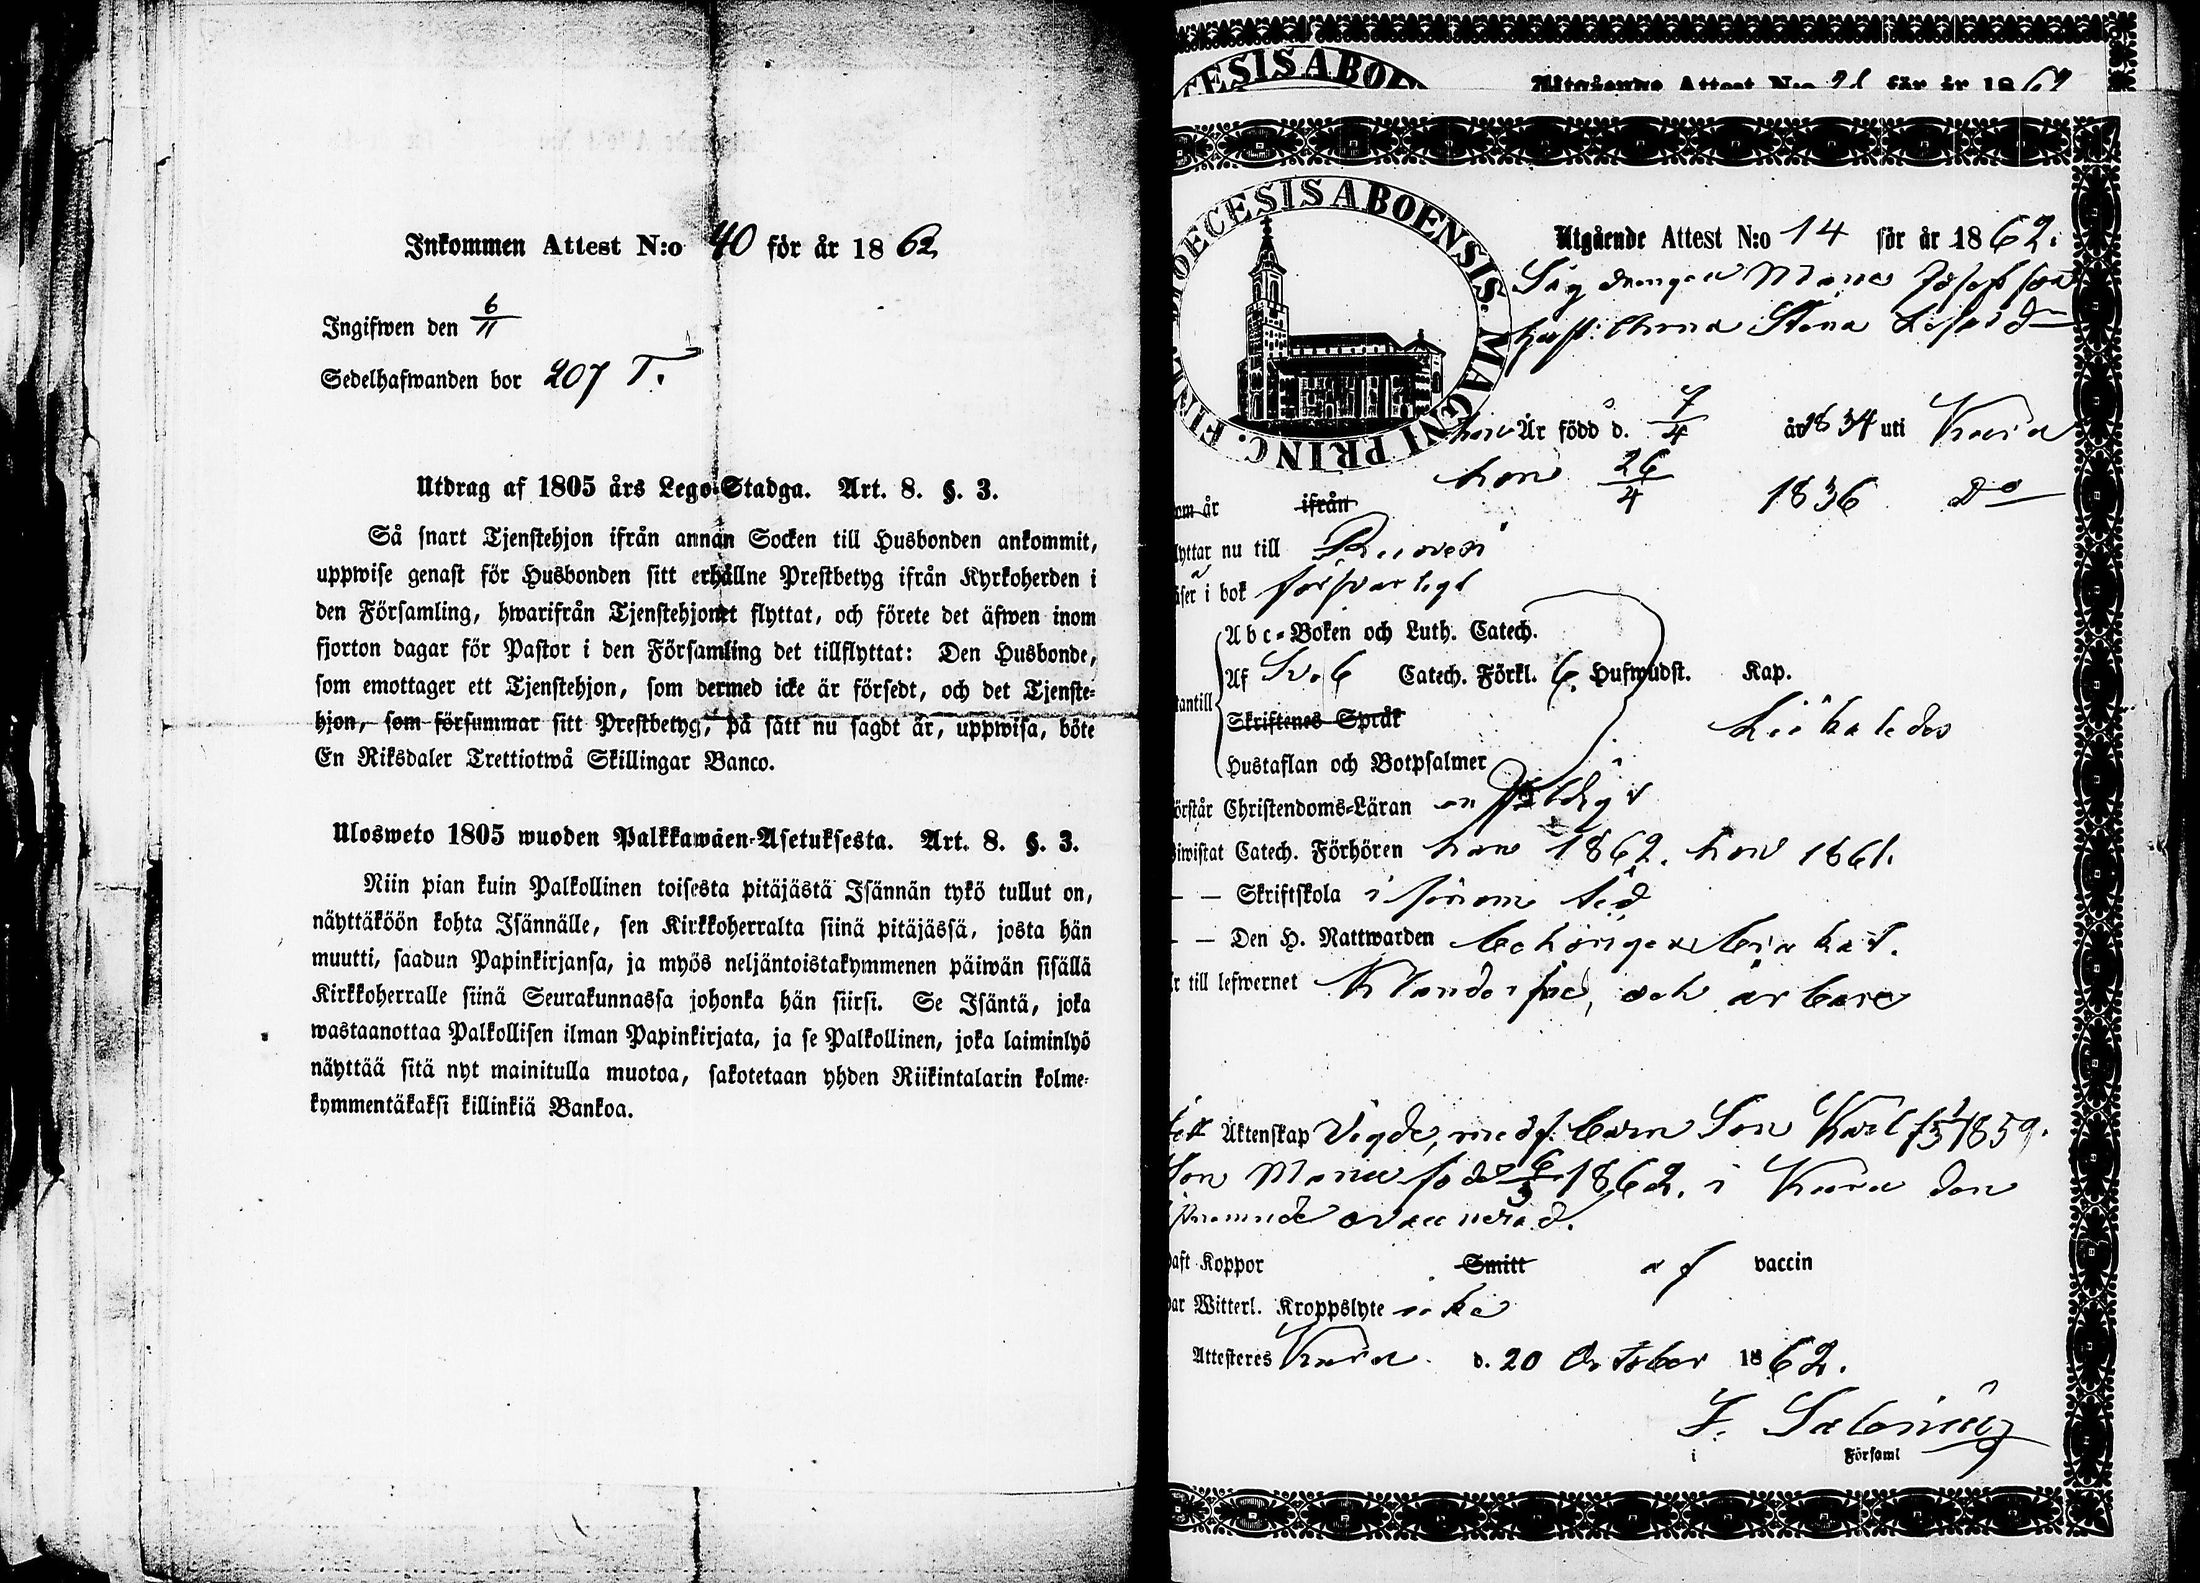 Inkommen Attest N:o 40 för år 1862
Ingifwen den 6/11
Sedelhafwanden bor 207 T.
Utdrag af 1805 års Lego-Stadga. Art. 8. §. 3.
Så snart Tjenstehjon ifrån annan Socken till Husbonden ankommit,
uppwise genast för Husbonden sitt erhållne Prestbetyg ifrån Kyrkoherden i
den Församling, hwarifrån Tjenstehjonet flyttat, och förete det äfwen inom
fjorton dagar för Pastor i den Församling det tillflyttat: Den Husbonde,
som emottager ett Tjenstehjon, som dermed icke är försedt, och det Tjenste-
hjon, som försummar sitt Prestbetyg, på sätt nu sagdt är, uppwisa, böte
En Riksdaler Trettiotwå Skillingar Banco.
Ulosweto 1805 wuoden Palkkawäen-Asetuksesta. Art. 8. §. 3.
Niin pian kuin Palkollinen toisesta pitäjästä Isännän tykö tullut on,
näyttäköön kohta Isännälle, sen Kirkkoherralta siinä pitäjässä, josta hän
muutti, saadun Papinkirjansa, ja myös neljäntoistakymmenen päiwän sisällä
Kirkkoherralle siinä Seurakunnassa johonka hän siirsi. Se Isäntä, joka
wastaanottaa Palkollisen ilman Papinkirjata, ja se Palkollinen, joka laiminlyö
näyttää sitä nyt mainitulla muotoa, sakotetaan yhden Riikintalarin kolme-
kymmentäkaksi killinkiä Bankoa.
ECESIS ABOE
Utgående Attest N:o 21 för år 1862
DIOECESIS ABOENSIS. MAGNI PRINC. FINL.
Utgående Attest N:o 14 för år 1862.
drengen Josefsson
Stina
han Är född d. 7/4 år 1834 uti Karna
hon 26/4 1836 Do
om är ifrån
lyttar nu till
äser i bok försvarligt
Abc-Boken och Luth. Catech.
Af Sv. 6 Catech. Förkl. 6. Hufwudst. Kap.
tantill
Skriftenes Språk
Hustaflan och Botpsalmer
örstår Christendoms-Läran
iwistat Catech. Förhören han 1862. hon 1861.
— — Skriftskola i sinom tid
— — Den H. Nattwarden behörigen brukat.
r till lefwernet och ärbare
Äktenskap Vigde, med barn Son Karl 1859.
Son född 6/3 1862. i den
haft Koppor Smitt af vaccin
ar Witterl. Kroppslyte icke
Attesteres d. 20 October 1862.
F.
i Församl